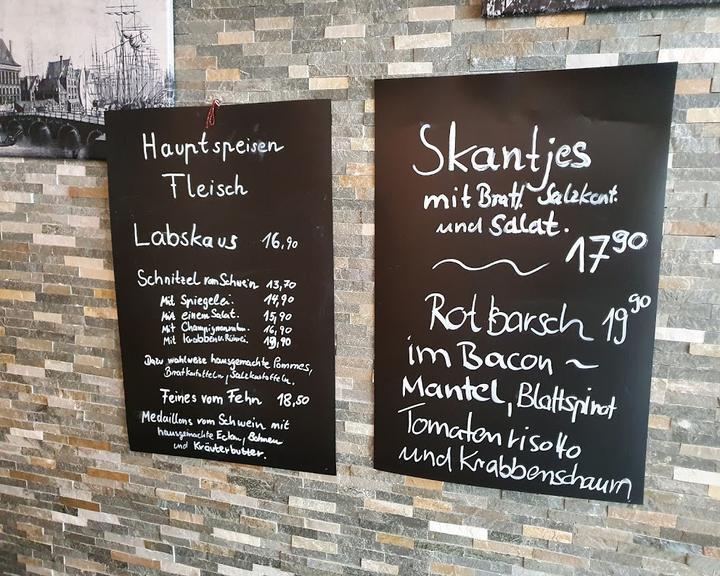 Hauptspeisen
Fleisch
Labskaus 16,90
Schnitzel vom Schwein 13,70
Mit Spiegelei. 14,90
Mit einem Salat. 15,90
Mit Champignonrahm. 16,90
Mit Krabben u. Rührei. 19,90
Dazu wahlweise hausgemachte Pommes,
Bratkartoffeln, Salzkartoffeln.
Feines vom Fehn 18,50
Medaillons vom Schwein mit
hausgemachte Ecken, Bohnen
und Kräuterbutter.
Skantjes
mit Bratk. Salzkart.
und Salat.
17⁹⁰
Rotbarsch 19⁹⁰
im Bacon ~
Mantel, Blattspinat
Tomatenrisotto
und Krabbenschaum